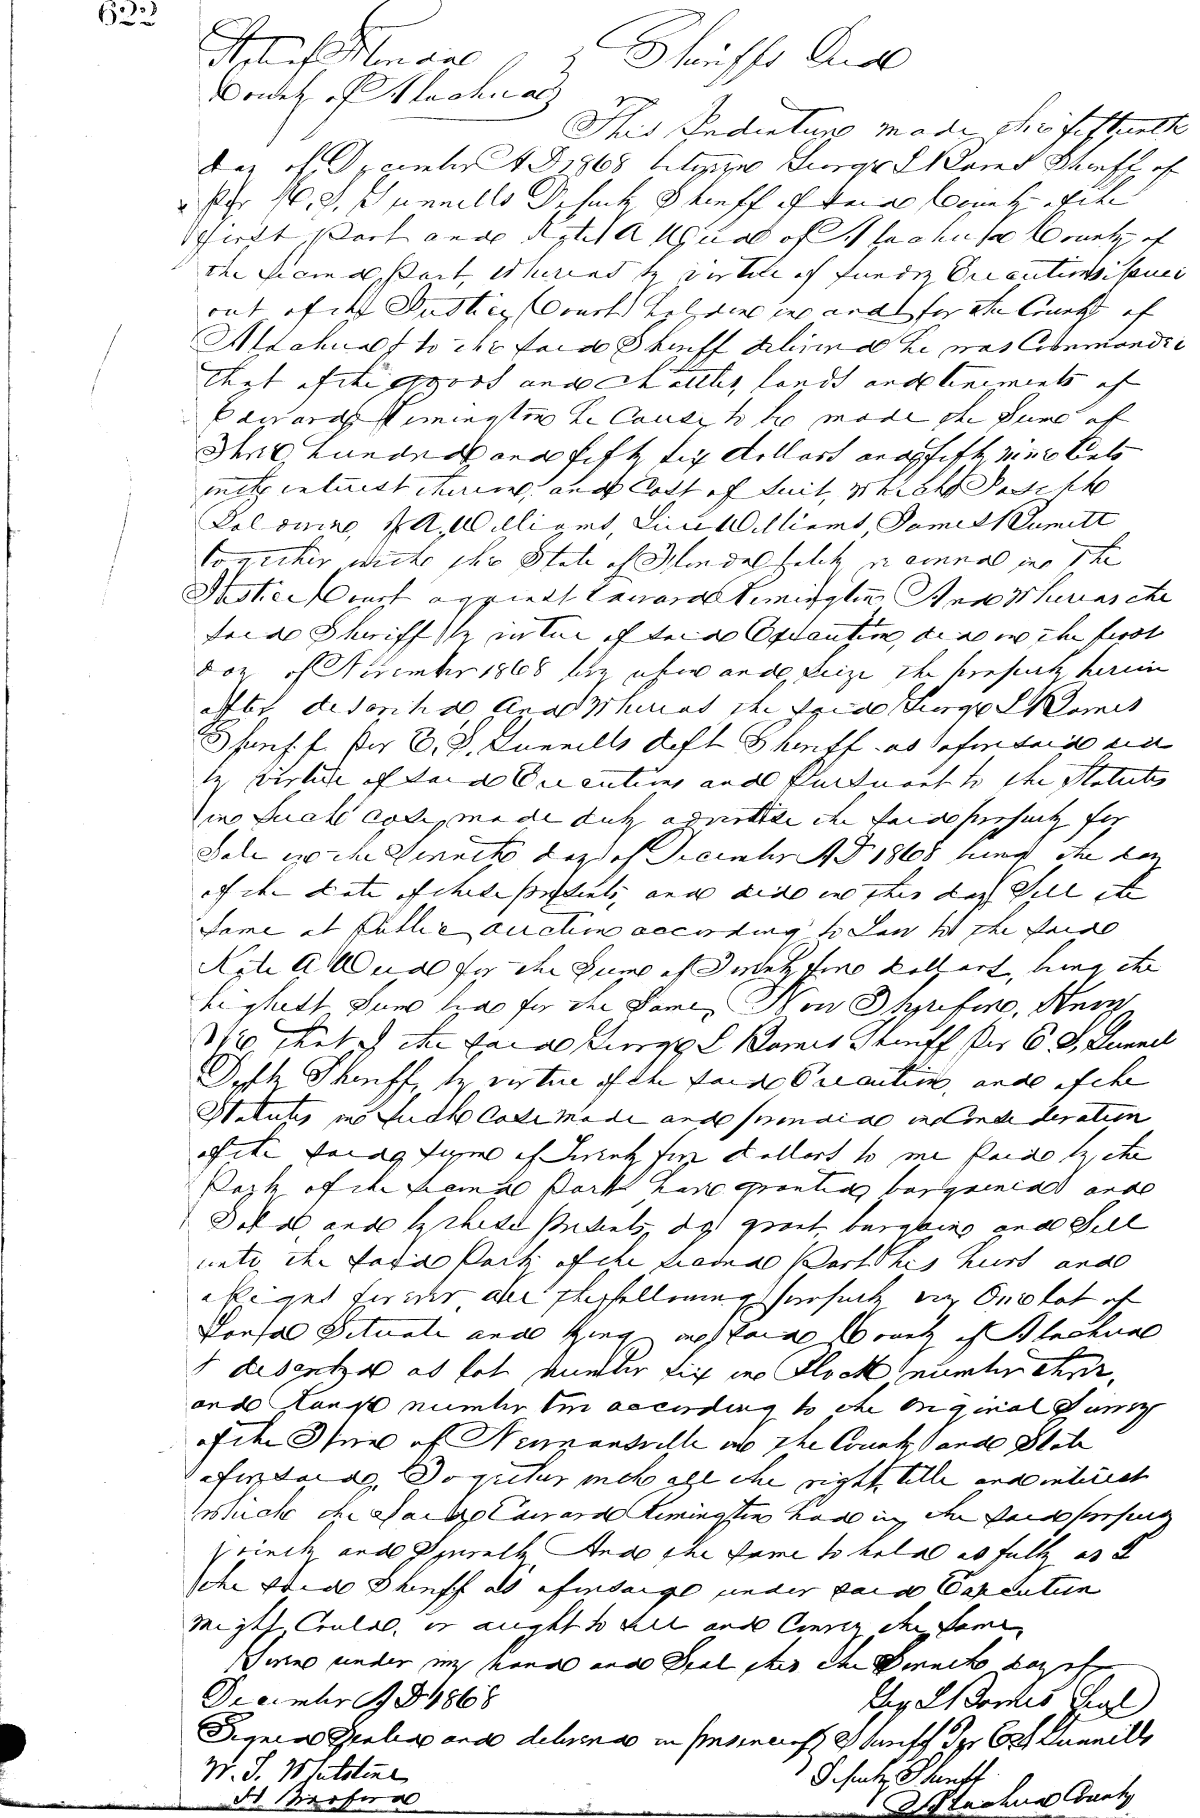 622
State of Florida } Sheriffs Deed
County of Alachua }
This Indenture made this fifteenth
day of December A D 1868 between George L Barnes Sheriff of
Per E. S. Gunnells Deputy Sheriff of said County of the
first Part and A of Alachua County of
the second Part, Whereas by virtue of sundry Executions issued
out of the Justices Court holden in and for the County of
Alachua to the said Sheriff delivered he was Commanded
that of the goods and chattles, lands and tenements of
Edward Remington he Cause to be made the Sum of
Three hundred and fifty six dollars and fifty nine Cets
with interest thereon, and Cost of suit, which Joseph
A. Williams, Williams, James
together with the State of Florida lately recovered in The
Justice Court against Edward Remington, And Whereas the
said Sheriff by virtue of said Execution, did on the first
day of November 1868 levy upon and Seize the property herein
after described And Whereas the said George L Barnes
Sheriff Per E. S. Gunnells dept Sheriff as aforesaid did
by virtue of said Executions and Pursuant to the Statutes
in Such case, made duly advertise the said property for
Sale on the day of December A D 1868 being the day
of the date of these presents, and did on this day Sell the
same at Public auction according to Law to the said
A for the Sum of Twenty five dollars, being the
highest Sum bid for the Same, Now Therefore, Know
Ye That I the said George L Barnes Sheriff Per E. S. Gunnel
Depty Sheriff, by virtue of the said Execution, and of the
Statutes in Such Case made and provided in Consideration
of the said sum of Twenty five dollars to me Paid by the
Party of the second Part have granted bargained and
Sold, and by these Presents, do grant, bargain and Sell
unto the said Party of the second Part his heirs and
assigns forever all the following property viz One lot of
Land Situate and lying in said County of Alachua
& described as lot number six in Block number three,
and Range number two according to the original Survey
of the Town of Newnansville in the County and State
aforesaid, Together with all the right, title and interest
which the said Edward Remington had in the said property
jointly and Severally And the same to hold as fully as I
the said Sheriff as aforesaid under said Execution
might, Could, or aught to sell and Convey the same,
Given under my hand and Seal this the day of
December A D 1868 Geo L Barnes Seal
Signed Sealed and delivered in presence of Sheriff Per E S Gunnells
W. J. Deputy Sheriff
Alachua County